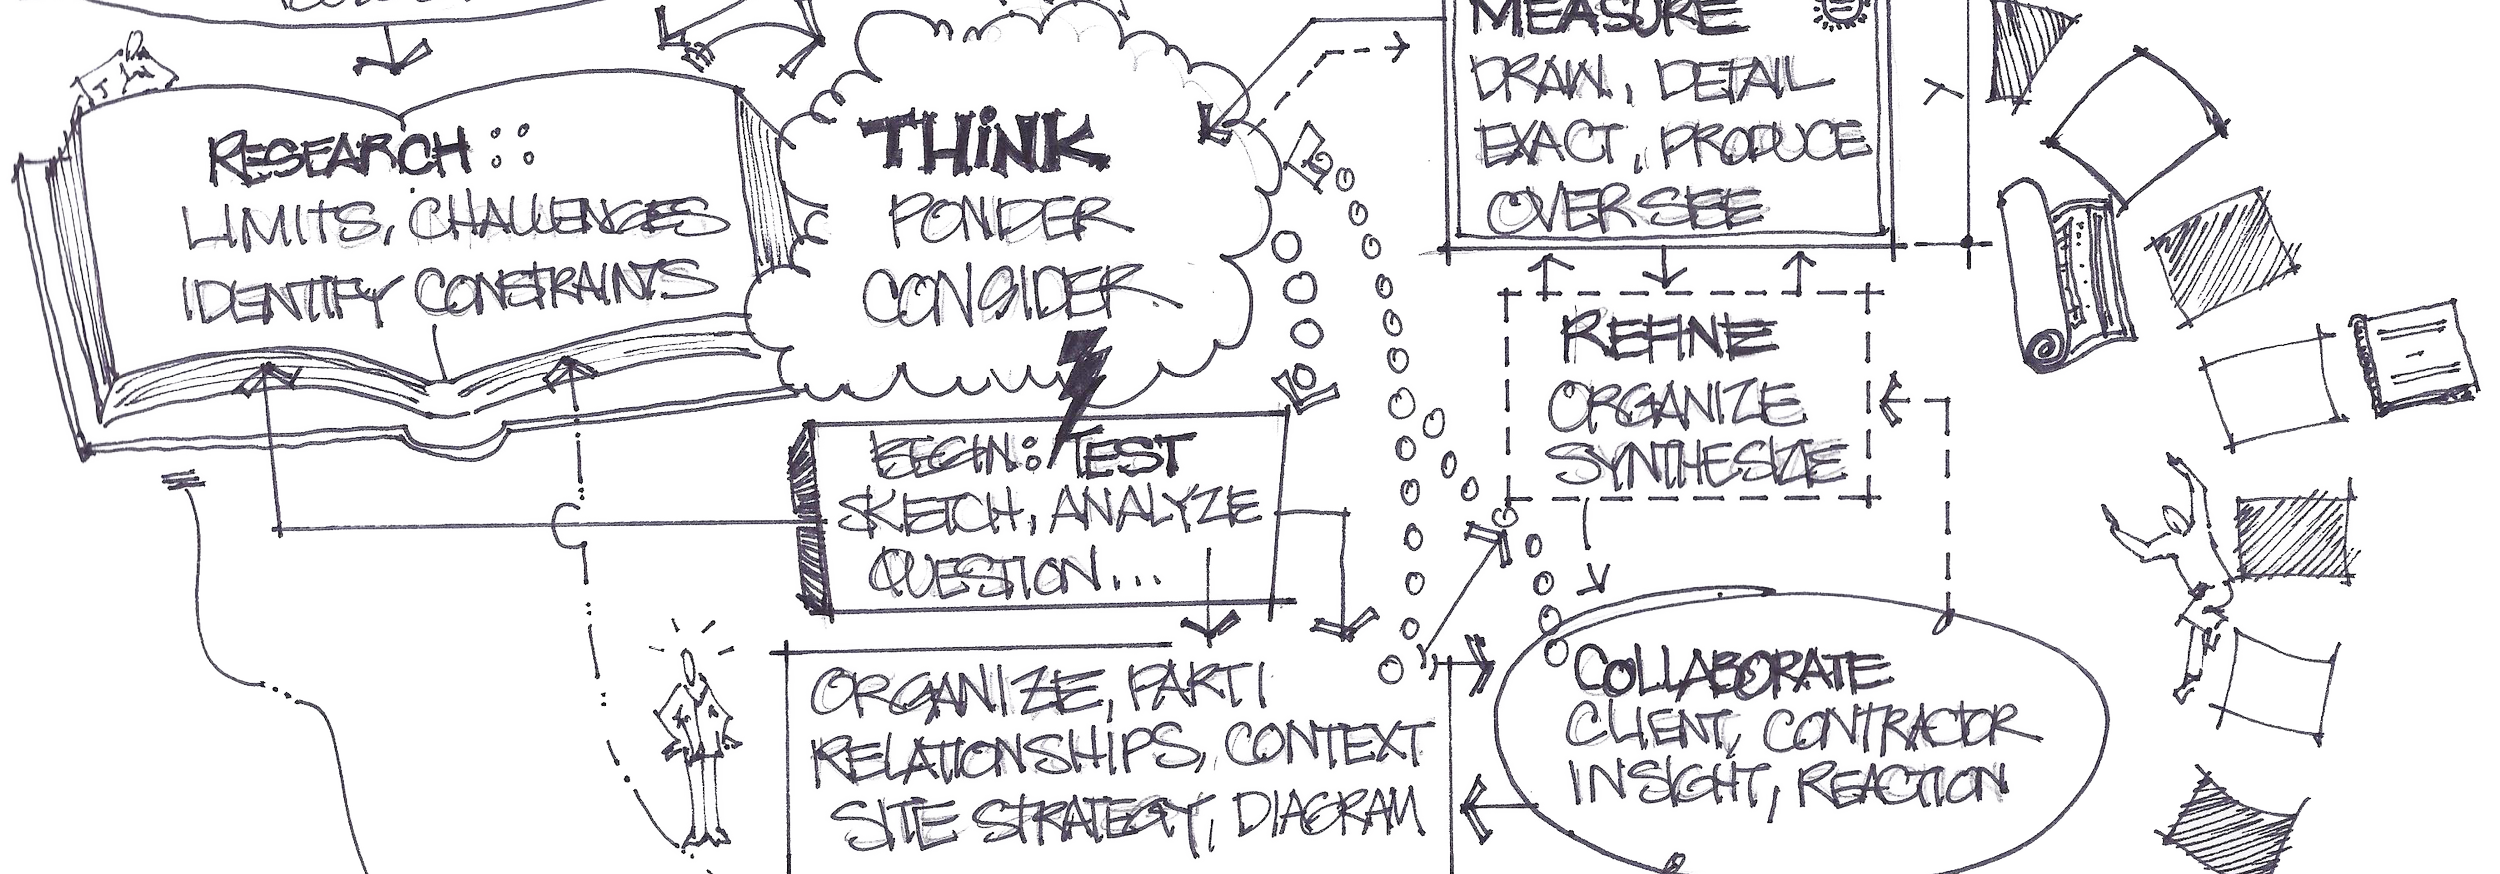 RESEARCH ::
LIMITS, CHALLENGES
IDENTIFY CONSTRAINTS
THiNK
PONDER
CONSIDER
MEASURE
DRAW, DETAIL
EXACT, PRODUCE
OVERSEE
BEGIN: TEST
SKETCH, ANALYZE
QUESTION...
REFINE
ORGANIZE
SYNTHESIZE
ORGANIZE, PARTI
RELATIONSHIPS, CONTEXT
SITE STRATEGY, DIAGRAM
COLLABORATE
CLIENT, CONTRACTOR
INSIGHT, REACTION